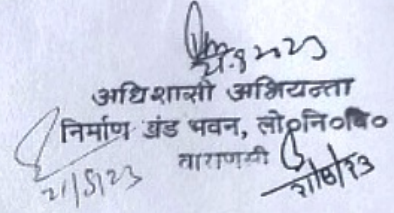 21.8.2023
अधिशासी अभियन्ता
निर्माण खंड भवन, लो०नि०वि०
वाराणसी
21/8/23
21/8/23